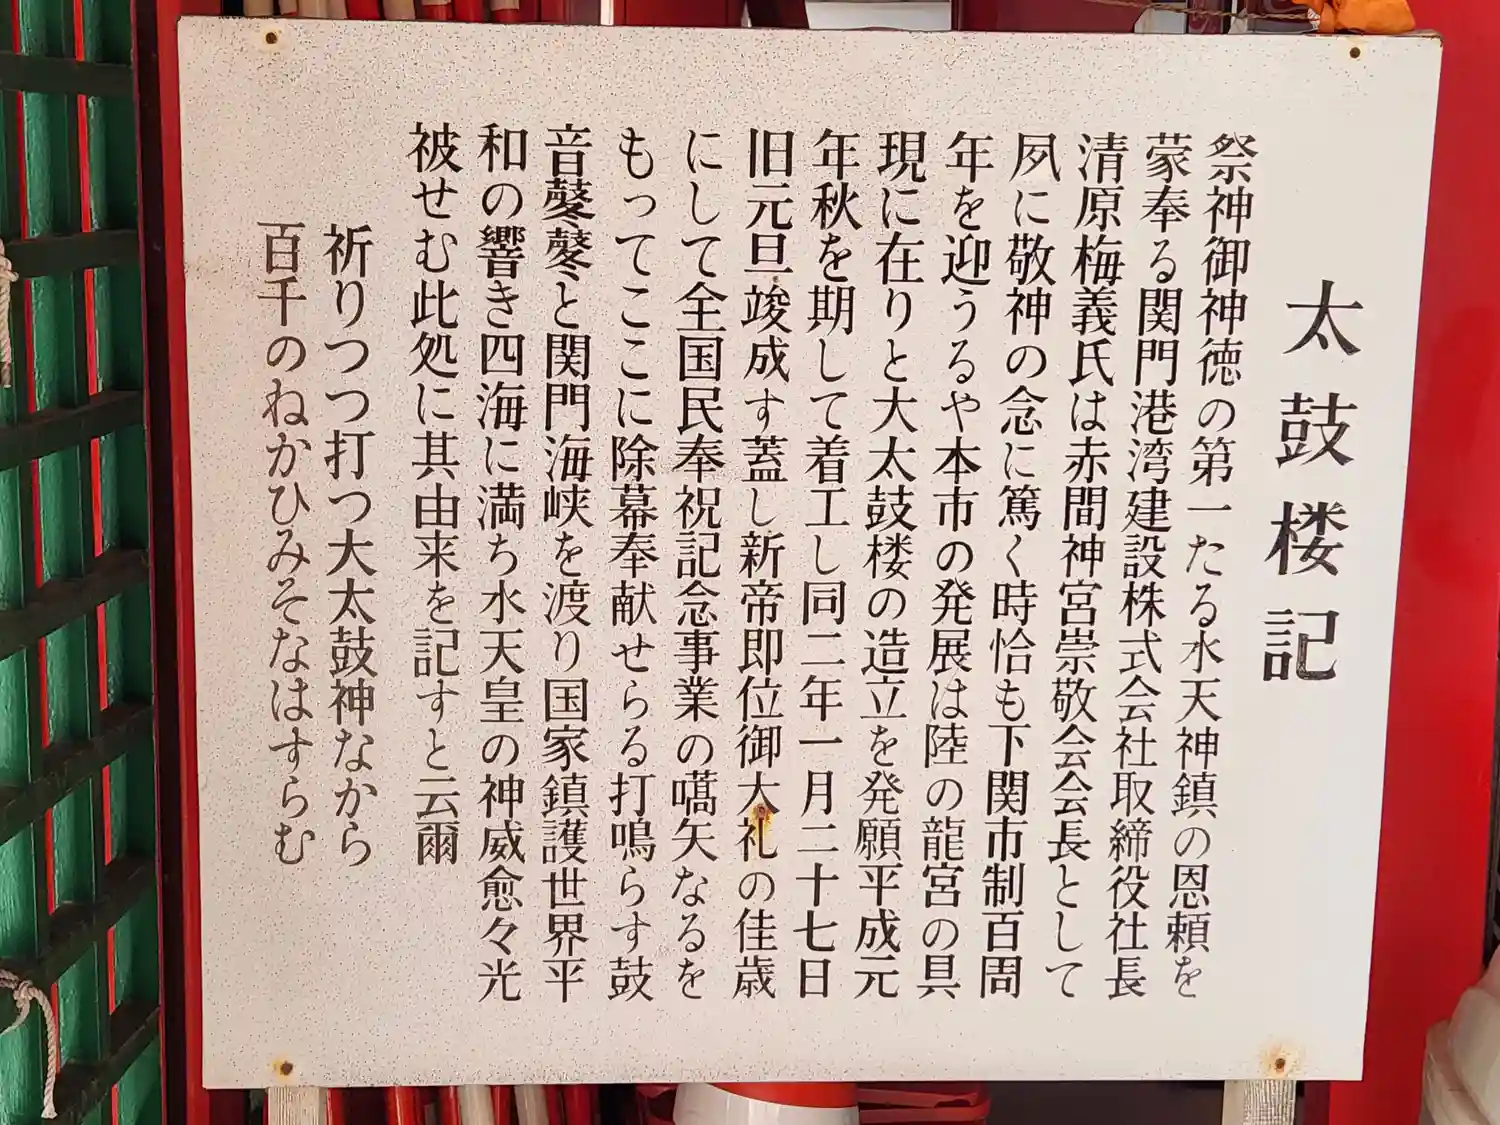 太鼓楼記
祭神御神徳の第一たる水天神鎮の恩頼を
蒙奉る関門港湾建設株式会社取締役社長
清原梅義氏は赤間神宮崇敬会会長として
夙に敬神の念に篤く時恰も下関市制百周
年を迎うるや本市の発展は陸の龍宮の具
現に在りと大太鼓楼の造立を発願平成元
年秋を期して着工し同二年一月二十七日
旧元旦竣成す蓋し新帝即位御大礼の佳歳
にして全国民奉祝記念事業の嚆矢なるを
もってここに除幕奉献せらる打鳴らす鼓
音鼕鼕と関門海峡を渡り国家鎮護世界平
和の響き四海に満ち水天皇の神威愈々光
被せむ此処に其由来を記すと云爾
祈りつつ打つ大太鼓神なから
百千のねかひみそなはすらむ